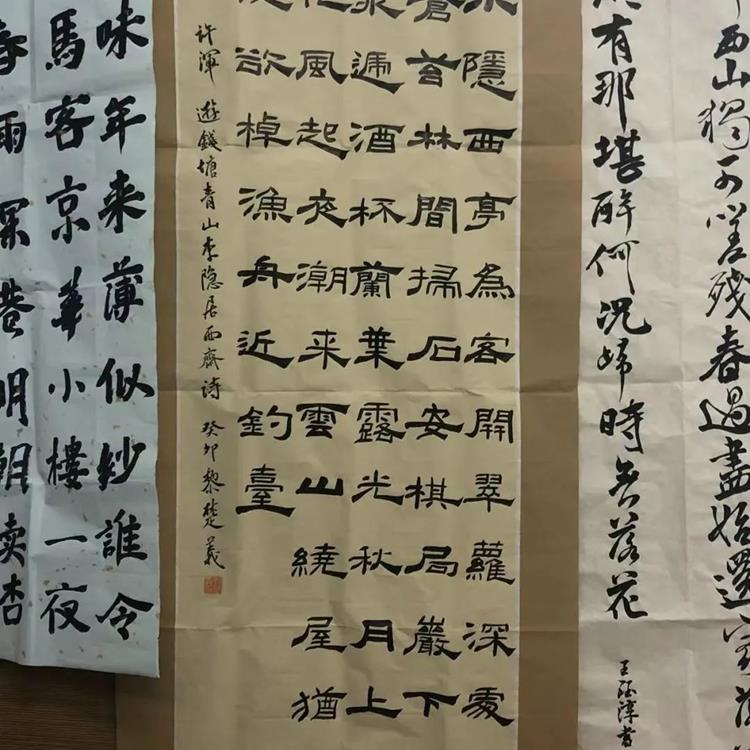 西山獨可嗟殘春過盡始還家
有那堪醉何況歸時無落花
王
淳書
來隱西亭為客開翠蘿深處
蒼苔林間掃石安棋局巖下
泉遞酒杯蘭葉露光秋月上
花風起夜潮來雲山繞屋猶
欲棹漁舟近釣臺
许渾 遊錢塘青山李隐居西齋诗 癸卯黎楚義
味年来薄似纱誰令
馬客京華小樓一夜
春雨深巷明朝卖杏